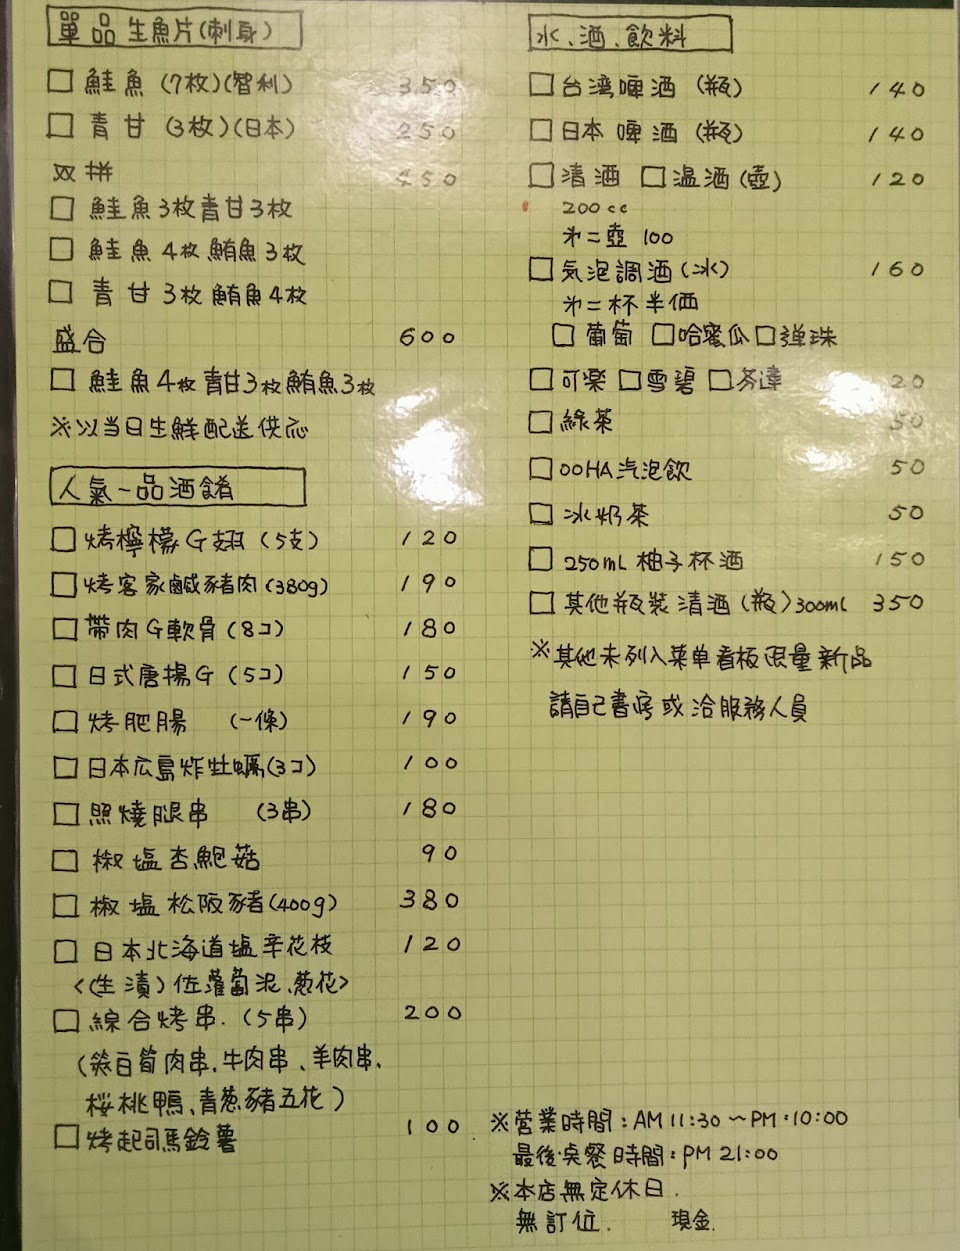 單品生魚片(刺身)
□ 鮭魚 (7枚)(智利) 350
□ 青甘 (3枚)(日本) 250
双拼 450
□ 鮭魚3枚青甘3枚
□ 鮭魚4枚鮪魚3枚
□ 青甘3枚鮪魚4枚
盛合 600
□ 鮭魚4枚青甘3枚鮪魚3枚
※以当日生鮮配送供応
人氣一品酒餚
□ 烤檸檬G翅 (5支) 120
□ 烤客家鹹豬肉(380g) 190
□ 帶肉G軟骨(8コ) 180
□ 日式唐揚G (5コ) 150
□ 烤肥腸 (一條) 190
□ 日本広島炸牡蠣(3コ) 100
□ 照燒腿串 (3串) 180
□ 椒塩杏鮑菇 90
□ 椒塩松阪豬(400g) 380
□ 日本北海道塩辛花枝 120
<(生漬)佐蘿蔔泥、葱花>
□ 綜合烤串.(5串) 200
(筊白筍肉串.牛肉串、羊肉串.
桜桃鴨、青葱豬五花)
□ 烤起司馬鈴薯 100
水、酒、飲料
□ 台湾啤酒 (瓶) 140
□ 日本啤酒 (瓶) 140
□ 清酒 □ 温酒(壺) 120
200cc
㐧二壺 100
□ 気泡調酒(冰) 160
㐧二杯半価
□ 葡萄 □ 哈蜜瓜 □ 弹珠
□ 可楽 □ 雪碧 □ 芬達 20
□ 綠茶 50
□ OOHA汽泡飲 50
□ 冰奶茶 50
□ 250mL 柚子杯酒 150
□ 其他瓶裝清酒(瓶)300ml 350
※其他未列入菜单看板限量新品
請自己書寫或洽服務人員
※営業時間:AM 11:30～PM.10:00
最後点餐時間:PM 21:00
※本店無定休日.
無訂位. 現金.